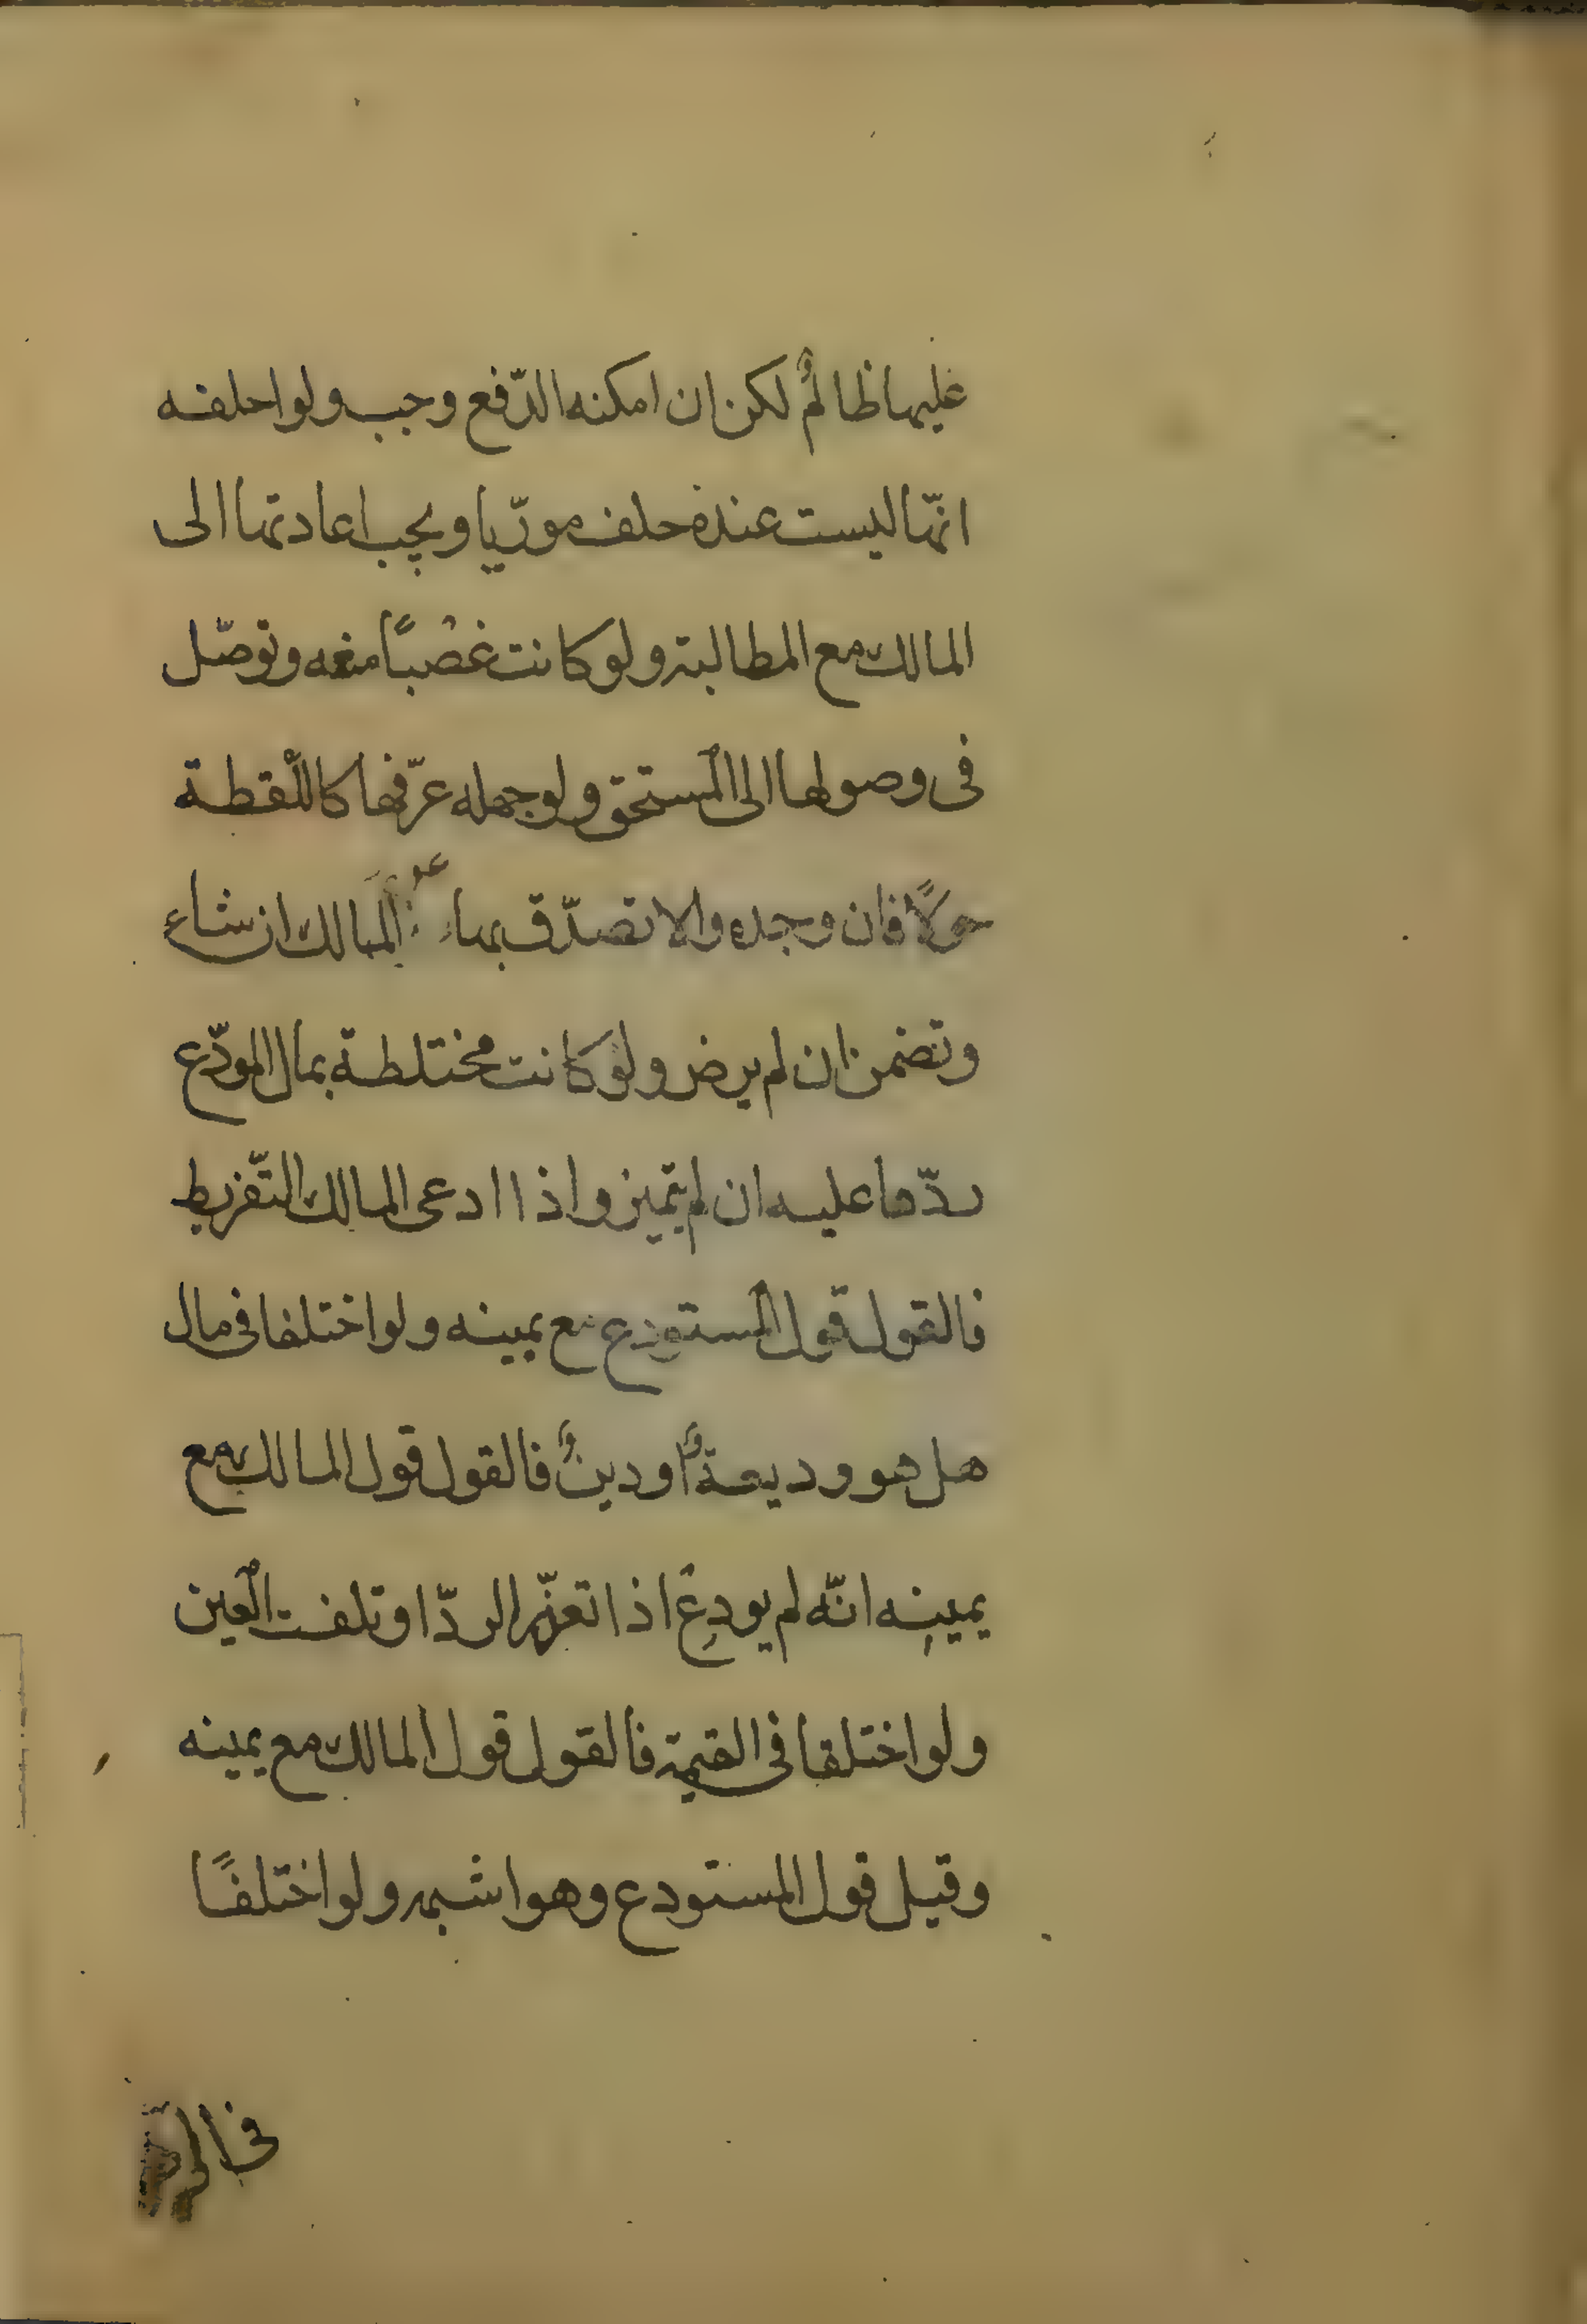 عليها ظالمٌ لكن ان امكنه الدّفع وجب ولو احلفه
انّها ليست عنده حلف مورّيا ويجب اعادتها الى
المالك مع المطالبة ولو كانت غصْبًا منعه وتوصّل
فى وصولها الى المستحق ولو جهله عرّفها كاللّقطة
حولًا فان وجده والا تصدّق بها عن المالك ان شاء
وتضمن ان لم يرض ولو كانت مختلطة بمال المودّع
ردّها عليه ان لم يتميز واذا ادعى المالك التّفريط
فالقول قول المستودع مع يمينه ولو اختلفا فى مال
هل هو وديعةٌ او دينٌ فالقول قول المالك مع
يمينِه انّه لم يودِعْ اذا تعذّر الردّ او تلفت العين
ولو اختلفا فى القيمة فالقول قول المالك مع يمينه
وقيل قول المستودع وهو اشبه ولو اختلفًا
فى الردّ